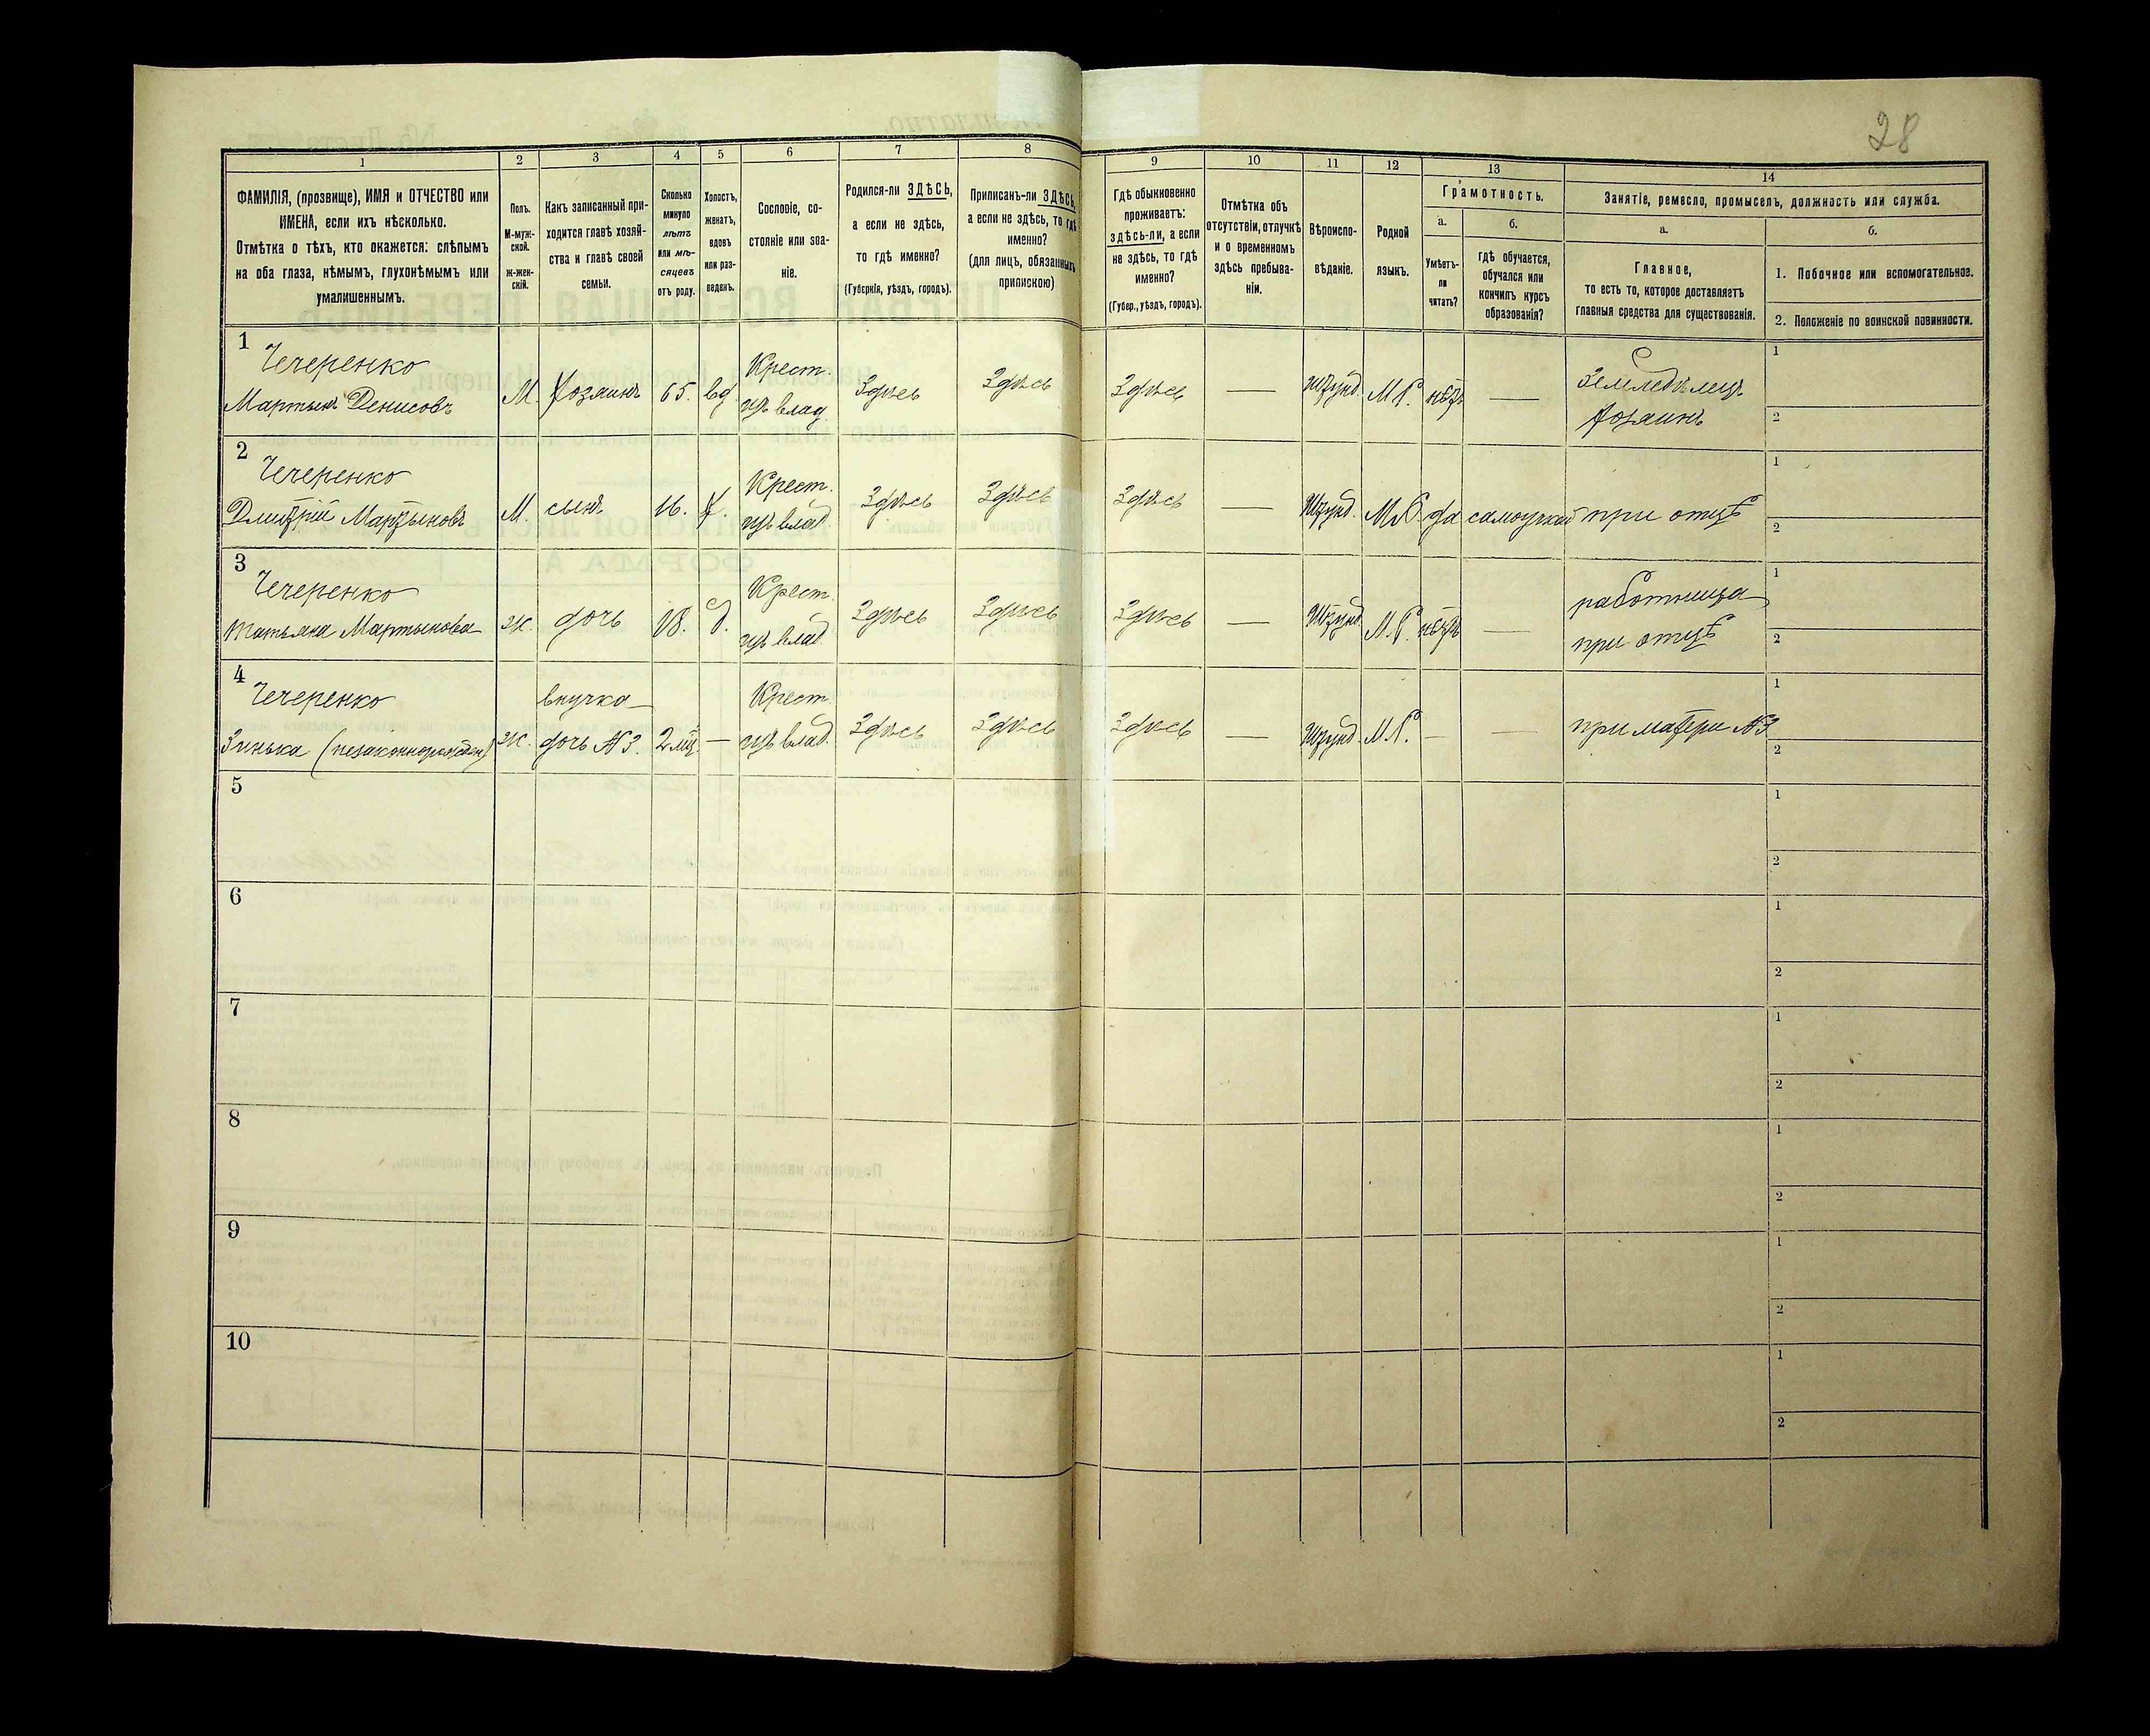 28
1 2 3 4 5 6 7 8 9 10 11 12 13 14
ФАМИЛІЯ, (прозвище), ИМЯ и ОТЧЕСТВО или
ИМЕНА, если ихъ нѣсколько.
Отмѣтка о тѣхъ, кто окажется: слѣпымъ
на оба глаза, нѣмымъ, глухонѣмымъ или
умалишеннымъ.
Полъ.
М-муж-
ской.
Ж-жен-
скій.
Какъ записанный при-
ходится главѣ хозяй-
ства и главѣ своей
семьи.
Сколько
минуло
лѣтъ
или мѣ-
сяцевъ
отъ роду.
Холостъ,
женатъ,
вдовъ
или раз-
веденъ.
Сословіе, со-
стояніе или зва-
ніе.
Родился-ли ЗДѢСЬ,
а если не здѣсь,
то гдѣ именно?
(Губернія, уѣздъ, городъ).
Приписанъ-ли ЗДѢСЬ,
а если не здѣсь, то гдѣ
именно?
(для лицъ, обязанныхъ
припискою)
Гдѣ обыкновенно
проживаетъ:
здѣсь-ли, а если
не здѣсь, то гдѣ
именно?
(Губер., уѣздъ, городъ).
Отмѣтка объ
отсутствіи, отлучкѣ
и о временномъ
здѣсь пребыва-
ніи.
Вѣроиспо-
вѣданіе.
Родной
языкъ.
Грамотность.
а.
Умѣетъ-
ли
читать?
б.
гдѣ обучается,
обучался или
кончилъ курсъ
образованія?
Занятіе, ремесло, промыселъ, должность или служба.
а.
Главное,
то есть то, которое доставляетъ
главныя средства для существованія.
б.
1. Побочное или вспомогательное.
2. Положеніе по воинской повинности.
1
Чечеренко
Мартынъ Денисовъ
М.
Хозяинъ
65.
вд.
Крест.
изъ влад.
Здѣсь
Здѣсь
Здѣсь
—
Штунд.
М.Р.
нѣтъ
—
Земледѣлецъ
Хозяинъ
1
2
2
Чечеренко
Дмитрій Мартыновъ
М.
сынъ
16.
Х.
Крест.
изъ влад.
Здѣсь
Здѣсь
Здѣсь
—
Штунд.
М.Р.
да
самоучкой
при отцѣ
1
2
3
Чечеренко
Татьяна Мартынова
Ж.
дочь
18.
д.
Крест.
изъ влад.
Здѣсь
Здѣсь
Здѣсь
—
Штунд.
М.Р.
нѣтъ
—
работница
при отцѣ
1
2
4
Чечеренко
Зинька (незаконнорожден)
Ж.
внучка
дочь №3.
2 мѣс
—
Крест.
изъ влад.
Здѣсь
Здѣсь
Здѣсь
—
Штунд.
М.Р.
—
—
при матери №3
1
2
5
1
2
6
1
2
7
1
2
8
1
2
9
1
2
10
1
2